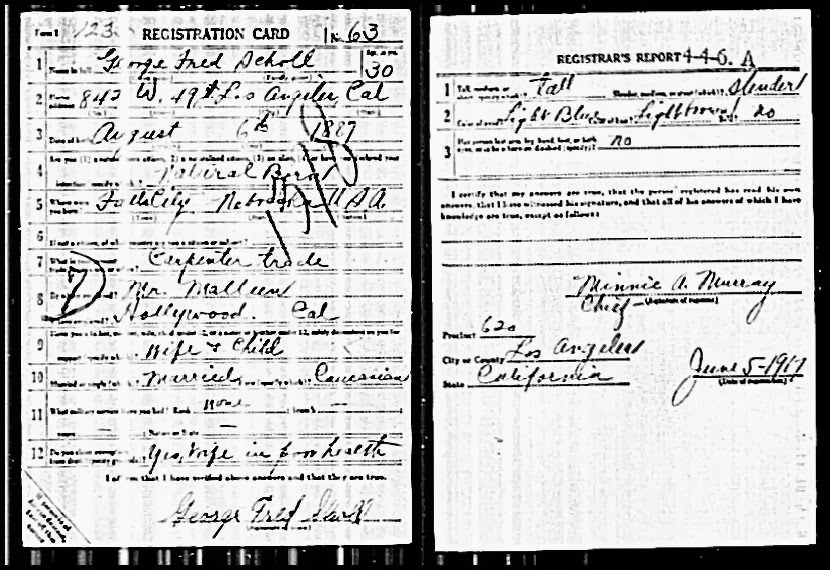 Form 1 123 REGISTRATION CARD No. 63
1 Name in full George Fred Scholl Age, in yrs. 30
2 Home address 842 W. 49th Los Angeles, Cal
3 Date of birth August 6th 1887
4 Are you (1) a natural born citizen, (2) a naturalized citizen, (3) an alien, (4)
Natural Born
5 Where were you born? Falls City Nebraska U.S.A.
6 If not a citizen, of what country are you a citizen or subject?
7 What is your present trade Carpenter trade
8 Mr.
Hollywood. Cal
9
Wife & Child
10 Married or single (which)? Married Race (specify which)? Caucasian
11 What military service have you had? Rank none branch —
years — Nation or State —
12 Do you claim exemption from draft (specify grounds)? Yes, Wife in poor health
I affirm that I have verified above answers and that they are true.
George Fred
REGISTRAR'S REPORT 4-4-6. A
1 Tall, medium, or short (specify which)? Tall Slender, medium, or stout (which)? Slender
2 Color of eyes? Light Blue Color of hair? Light brown Bald? no
3 Has person lost arm, leg, hand, foot, or both eyes, or is he otherwise disabled (specify)? no
I certify that my answers are true, that the person registered has read his own
answers, that I have witnessed his signature, and that all of his answers of which I have
knowledge are true, except as follows:
Minnie A. Murray
Chief (Signature of registrar)
Precinct 620
City or County Los Angeles
State California June 5-1917
(Date of registration)